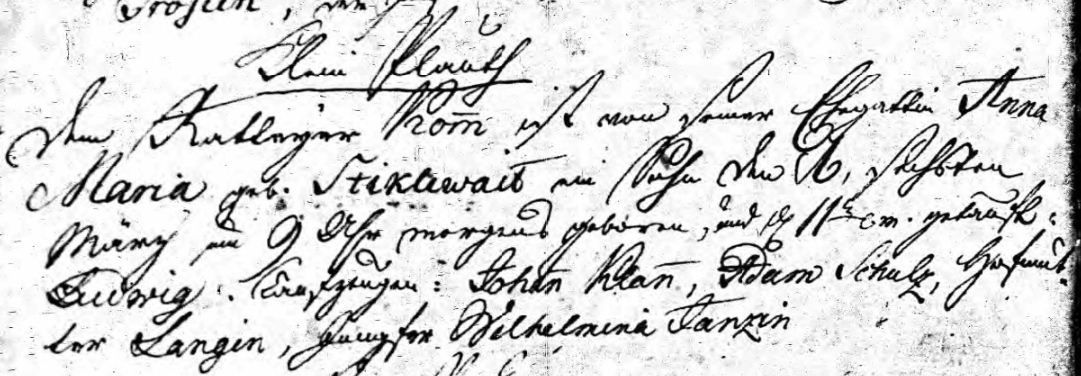 Klein Plauth
Dem Ratleyer Kom̄ ist von seiner Ehegattin Anna
Maria geb. Stiklawait ein Sohn den 6, sechsten
März um 9 Uhr morgens geboren, und d 11 getauft:
Ludwig. Taufzeugen: Johan̄ Klan̄, Adam Schulz, Hofmut-
ter Langin, Jungfer Wilhelmina Tanzin